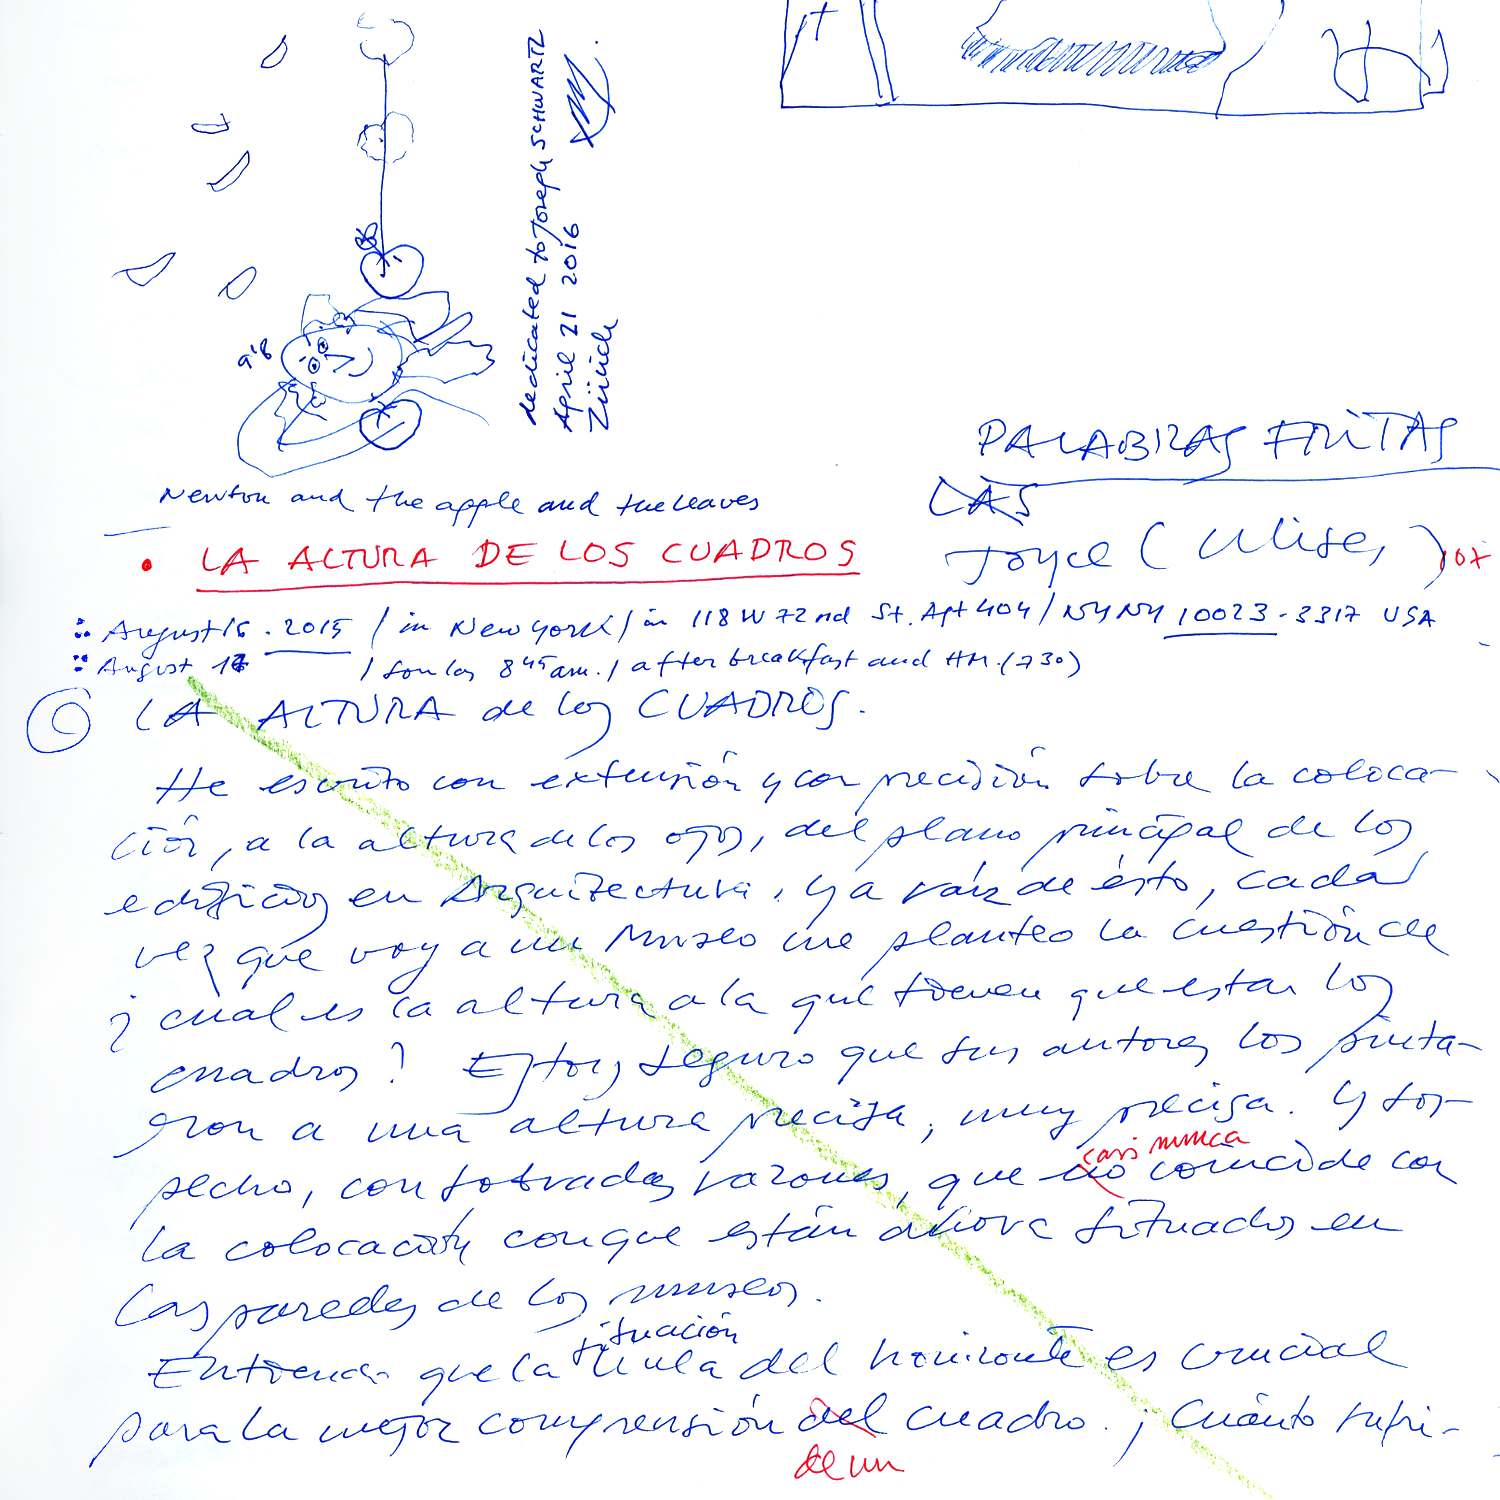 dedicated to Joseph SCHWARTZ
April 21 2016
Zürich
Newton and the apple and the leaves
PALABRAS FRITAS
LAS
Joyce (Ulises)
• LA ALTURA DE LOS CUADROS
August 16. 2015 / in New York / in 118 W 72nd St. Apt 404 / NY NY 10023-3317 USA
August 17 / son las 8 45 am. / after breakfast and HM. (730)
© LA ALTURA de los CUADROS.
He escrito con extensión y con precisión sobre la coloca-
ción, a la altura de los ojos, del plano principal de los
edificios en Arquitectura. Y a raíz de ésto, cada
vez que voy a un Museo me planteo la cuestión de
¿cual es la altura a la que tienen que estar los
cuadros? Estoy seguro que sus autores los pinta-
ron a una altura precisa, muy precisa. Y sos-
casi nunca
pecho, con sobradas razones, que no coincide con
la colocación con que están ahora situados en
las paredes de los museos.
situación
Entiendo que la del horizonte es crucial
para la mejor comprensión del cuadro. ¡Cuánto sufri-
de un